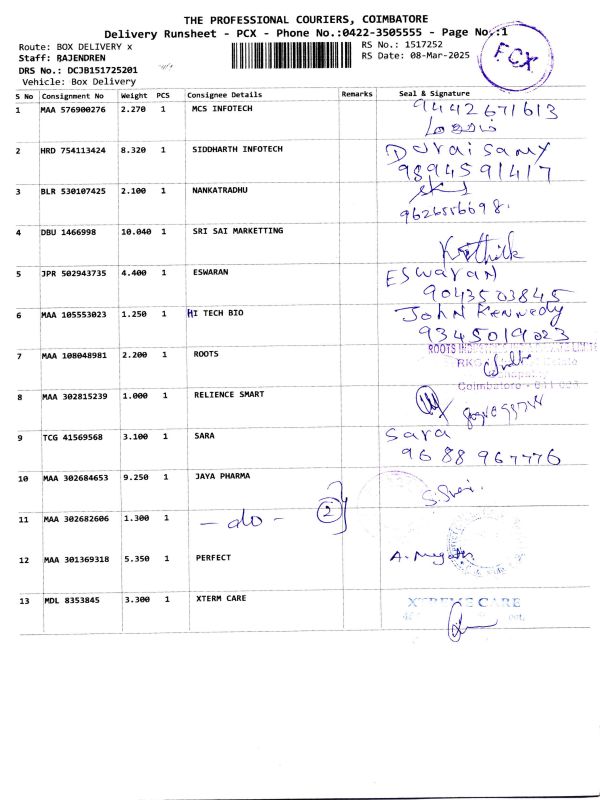 THE PROFESSIONAL COURIERS, COIMBATORE
Delivery Runsheet - PCX - Phone No.:0422-3505555 - Page No.:1
Route: BOX DELIVERY x
RS No.: 1517252
Staff: RAJENDREN
RS Date: 08-Mar-2025
DRS No.: DCJB151725201
Vehicle: Box Delivery
PCX
S No Consignment No Weight PCS Consignee Details Remarks Seal & Signature
1 MAA 576900276 2.270 1 MCS INFOTECH 9442671613
2 HRD 754113424 8.320 1 SIDDHARTH INFOTECH Duraisamy
9894591417
3 BLR 530107425 2.100 1 NANKATRADHU
9626556698.
4 DBU 1466998 10.040 1 SRI SAI MARKETTING Karthik
5 JPR 502943735 4.400 1 ESWARAN ESWARAN
9043503845
6 MAA 105553023 1.250 1 HI TECH BIO John Kennedy
9345019023
7 MAA 108048981 2.200 1 ROOTS ROOTS
Coimbatore
8 MAA 302815239 1.000 1 RELIENCE SMART
9 TCG 41569568 3.100 1 SARA Sara
9688967776
10 MAA 302684653 9.250 1 JAYA PHARMA
11 MAA 302682606 1.300 1 - do - 2
12 MAA 301369318 5.350 1 PERFECT
13 MDL 8353845 3.300 1 XTERM CARE XTREME CARE